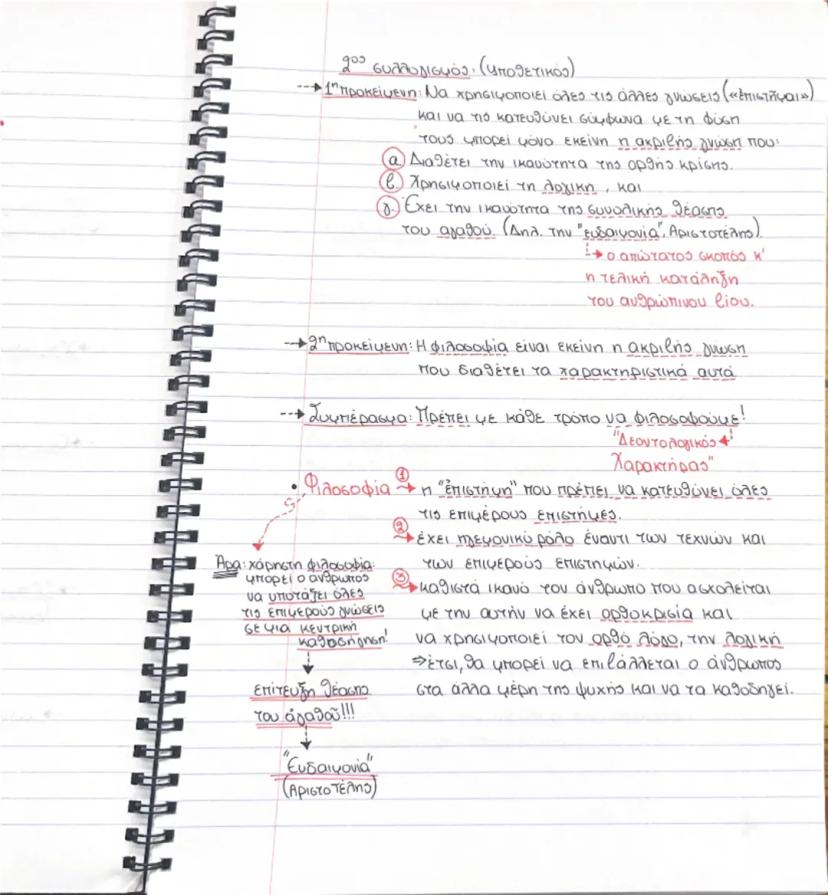 2ος συλλογισμός: (υποθετικός)
1η προκείμενη: Να χρησιμοποιεί όλες τις άλλες γνώσεις («ἐπιστῆμαι»)
και να τις κατευθύνει σύμφωνα με τη φύση
τους μπορεί μόνο εκείνη η ακριβής γνώση που:
α Διαθέτει την ικανότητα της ορθής κρίσης.
β. Χρησιμοποιεί τη λογική, και
γ. Έχει την ικανότητα της συνολικής θέασης
του αγαθού. (Δηλ. την "ευδαιμονία", Αριστοτέλης).
ο απώτατος σκοπός κ'
η τελική κατάληξη
του ανθρώπινου βίου.
2η προκείμενη: Η φιλοσοφία είναι εκείνη η ακριβής γνώση
που διαθέτει τα χαρακτηριστικά αυτά
Συμπέρασμα: Πρέπει με κάθε τρόπο να φιλοσοφούμε!
"Δεοντολογικός
Χαρακτήρας"
• Φιλοσοφία 1 η "ἐπιστήμη" που πρέπει να κατευθύνει όλες
τις επιμέρους επιστήμες.
2 έχει ηγεμονικό ρόλο έναντι των τεχνών και
των επιμερούς επιστημών.
3 καθιστά ικανό τον άνθρωπο που ασχολείται
με την αυτήν να έχει ορθοκρισία και
να χρησιμοποιεί τον ορθό λόγο, την λογική
⇒έτσι, θα μπορεί να επιβάλλεται ο άνθρωπος
στα άλλα μέρη της ψυχής και να τα καθοδηγεί.
Άρα: χάρη στη φιλοσοφία
μπορεί ο άνθρωπος
να υποτάξει όλες
τις επιμερούς γνώσεις
σε μια κεντρική
καθοδήγηση!
επίτευξη θέασης
του ἀγαθοῦ!!!
"Ευδαιμονία"
(Αριστοτέλης)